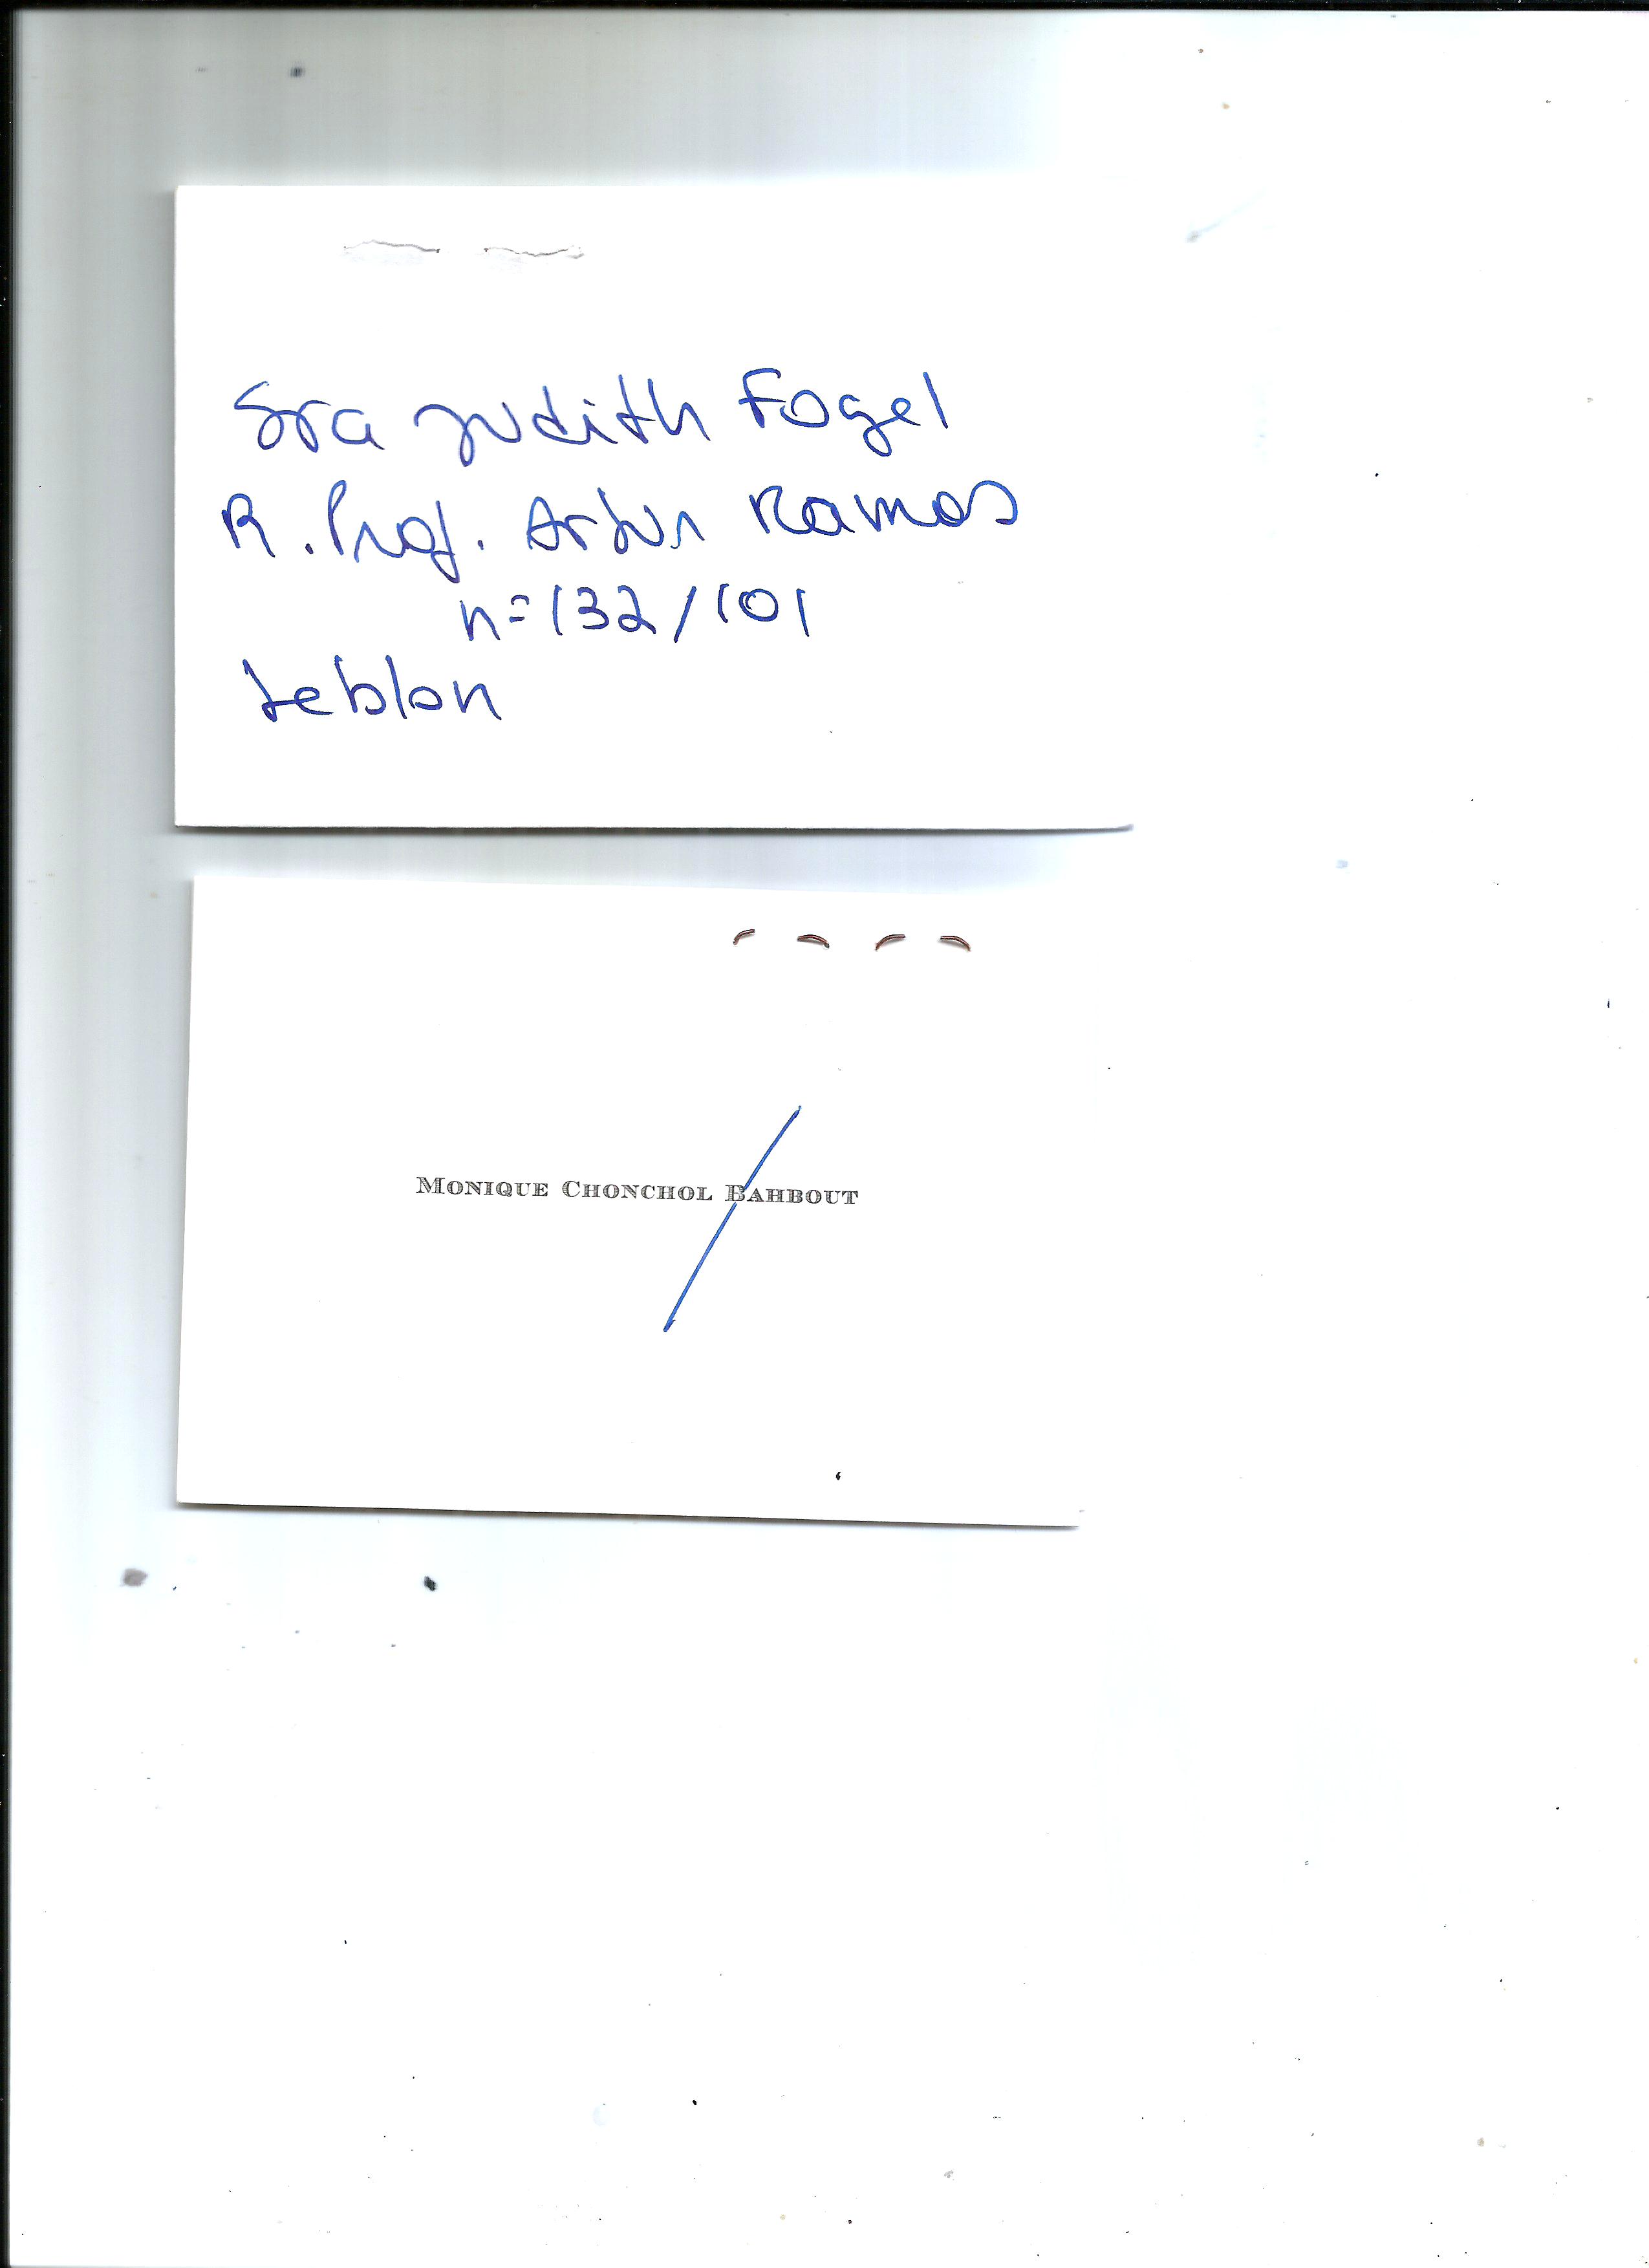 Sra Judith Fogel
R. Prof. Artur Ramos
n=132/101
Leblon
MONIQUE CHONCHOL BAHBOUT